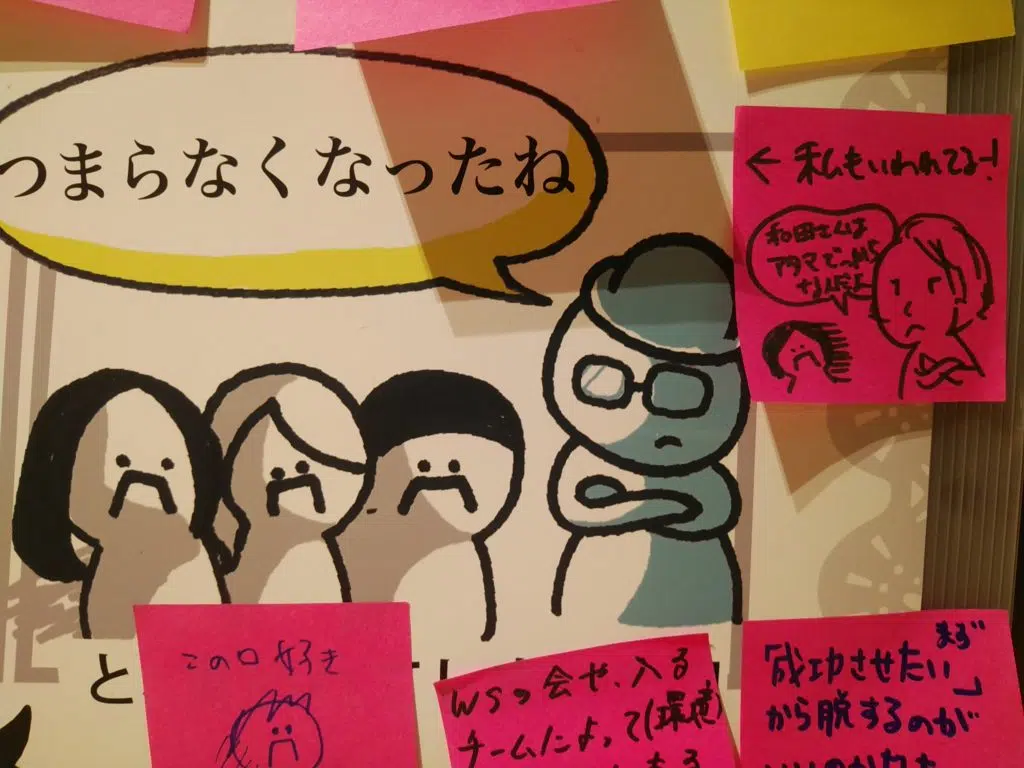 つまらなくなったね
← 私もいわれてる!
和田さんは
アタマでっかち
なんだよ
と
この口好き
WSの会や、入る
チームによって(環境)
まず
「成功させたい」
から脱するのが